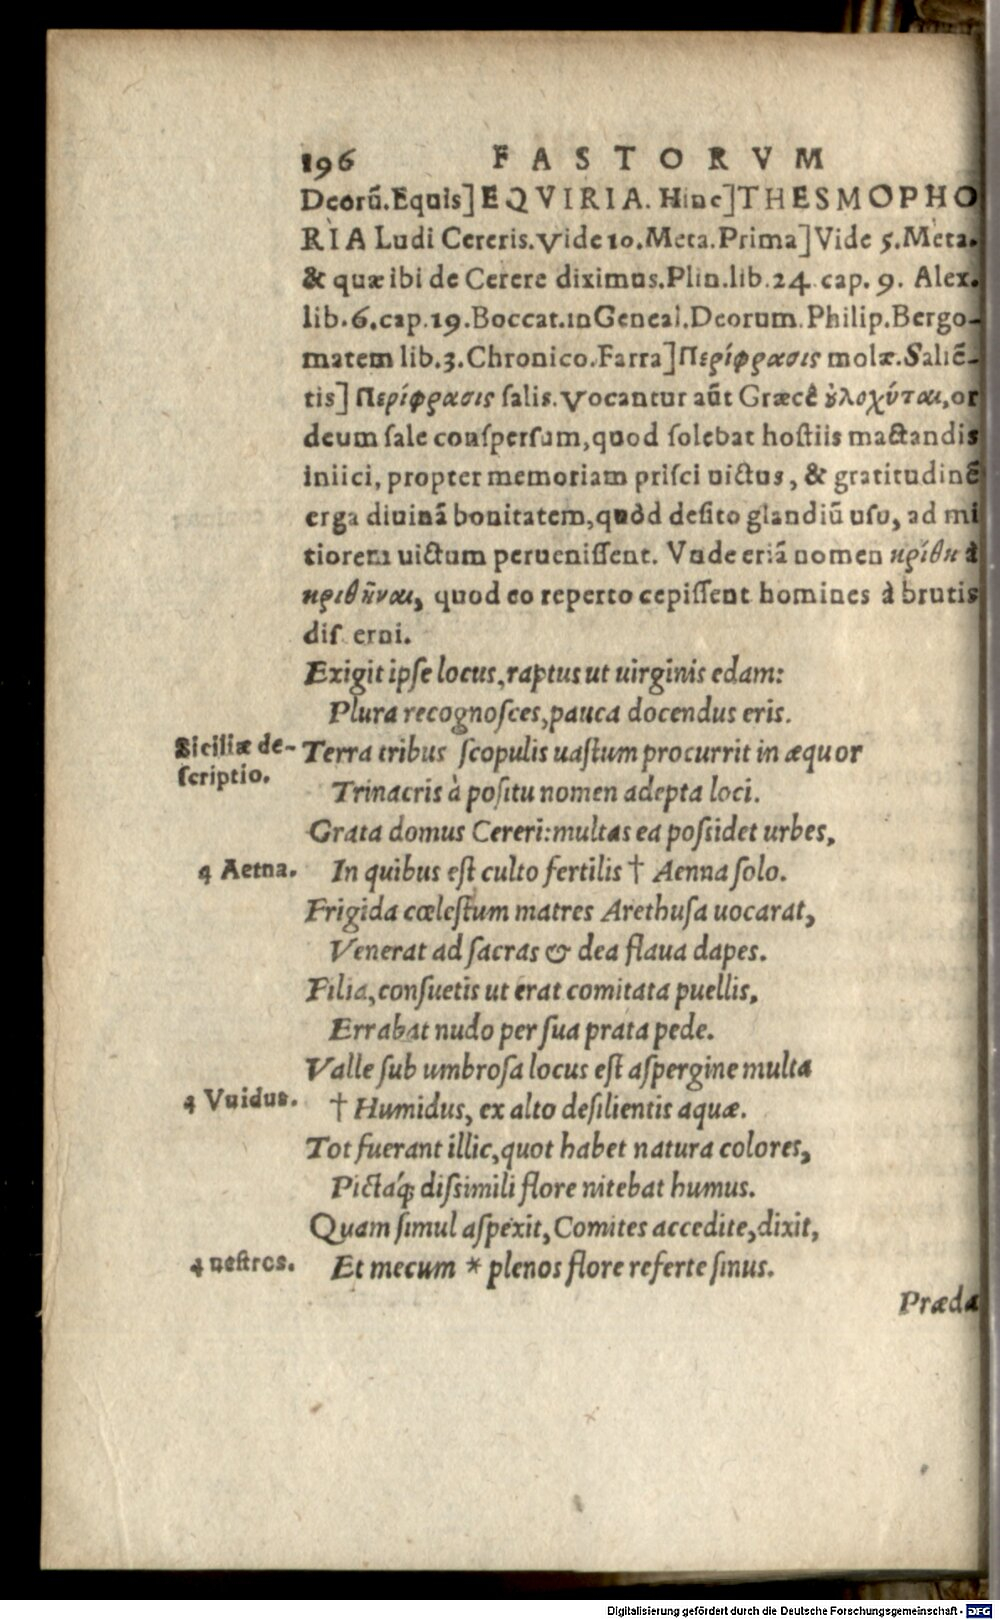 196 FASTORVM
Deorū.Equis] EQVIRIA. Hinc] THESMOPHO
RIA Ludi Cereris.Vide 10.Meta.Prima] Vide 5.Meta.
& quæ ibi de Cerere diximus.Plin.lib.24.cap. 9. Alex.
lib.6.cap.19.Boccat.in Geneal.Deorum.Philip.Bergo-
matem lib.3.Chronico.Farra] Περίφρασις molæ.Saliē-
tis] Περίφρασις salis.Vocantur aūt Græcè ȣ̓λοχύται,or
deum sale conspersum,quod solebat hostiis mactandis
iniici, propter memoriam prisci uictus, & gratitudinē
erga diuinā bonitatem,quòd desito glandiū usu, ad mi
tiorem uictum peruenissent. Vnde etiā nomen κρίθη à
κριθῆναι, quod eo reperto cepissent homines à brutis
dis erni.
Exigit ipse locus,raptus ut uirginis edam:
Plura recognosces,pauca docendus eris.
Siciliæ de-
scriptio.
Terra tribus scopulis uastum procurrit in æquor
Trinacris à positu nomen adepta loci.
Grata domus Cereri:multas ea possidet urbes,
4 Aetna.
In quibus est culto fertilis † Aenna solo.
Frigida cœlestum matres Arethusa uocarat,
Venerat ad sacras & dea flaua dapes.
Filia,consuetis ut erat comitata puellis,
Errabat nudo per sua prata pede.
Valle sub umbrosa locus est aspergine multa
4 Vuidus.
† Humidus, ex alto desilientis aquæ.
Tot fuerant illic,quot habet natura colores,
Pictáq; dissimili flore nitebat humus.
Quam simul aspexit, Comites accedite,dixit,
4 nestros.
Et mecum * plenos flore referte sinus.
Præda
Digitalisierung gefördert durch die Deutsche Forschungsgemeinschaft - DFG